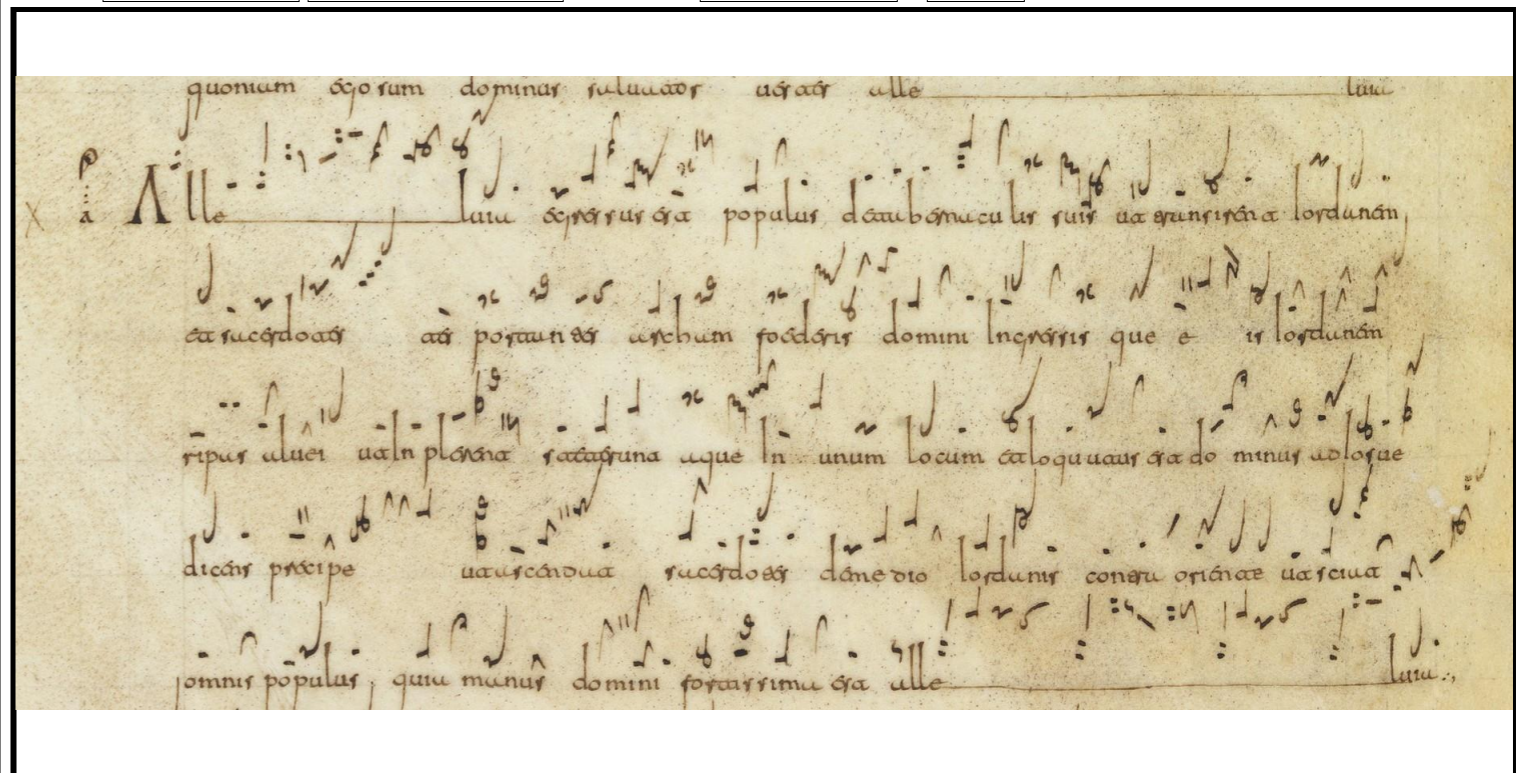 quoniam ego sum dominus saluator uester alle luia
Alle luia egressus est populus de tabernaculis suis ut transiret Iordanem,
et sacerdotes portantes archam foederis domini Ingressis que Iordanem
ripas aluei ut Inplerent aque In unum locum et loquutus est dominus ad Iosue
dicens precipe ut ascendant sacerdotes de medio Iordanis contra oriente ut sciat
omnis populus, quia manus domini fortissima est alle luia